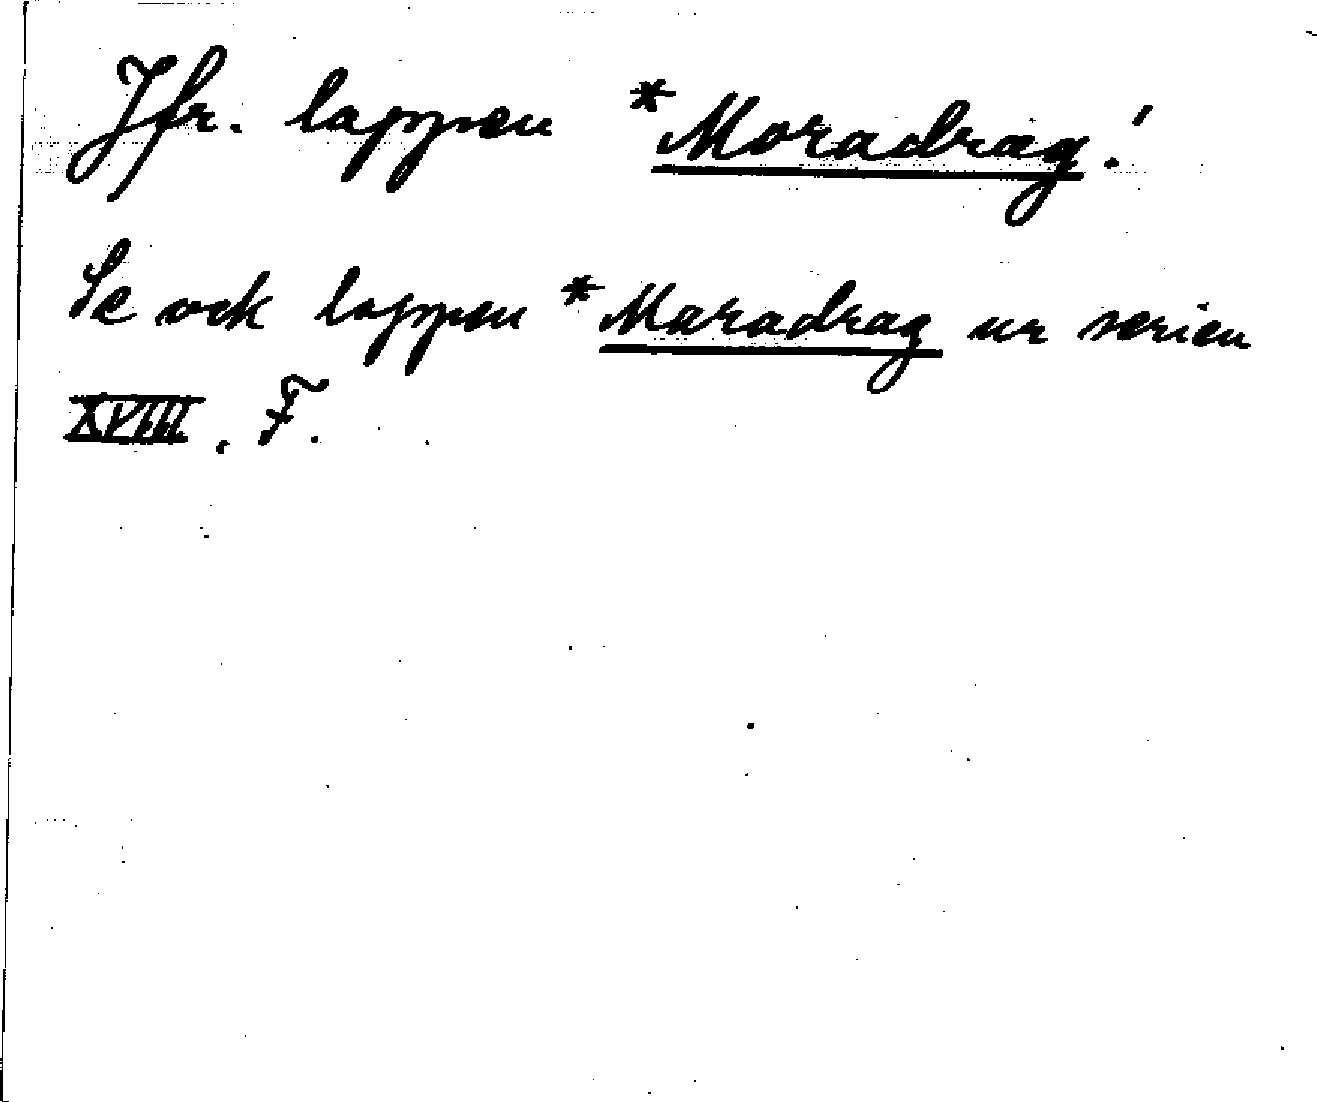 Jfr. lappen *Moradrag!
Se ock lappen *Maradrag ur serien
XVIII. F.